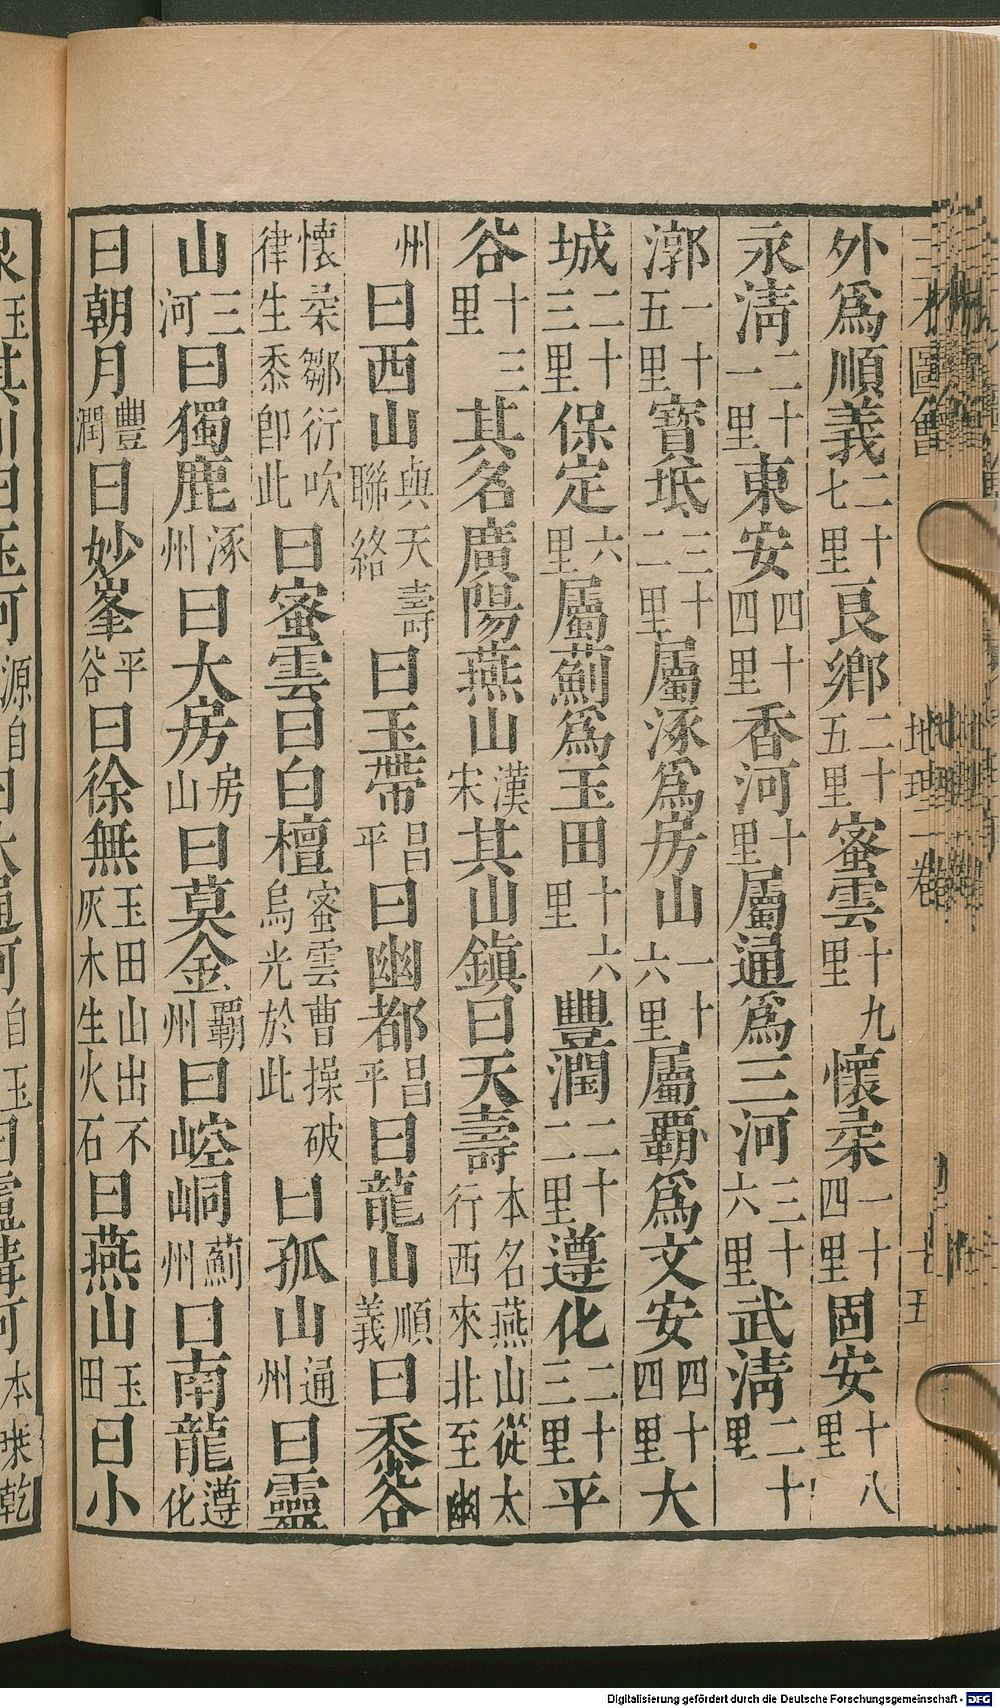 三才圖會
地理二卷
外爲順義二十七里良鄉二十五里蜜雲十九里懷柔一十四里固安十八里
永淸二十一里東安四十四里香河十里屬通爲三河三十六里武淸二十里
漷一十五里寳坻三十二里屬涿爲房山一十六里屬覇爲文安四十四里大
城二十三里保定六里屬薊爲玉田十六里豐潤二十二里遵化二十三里平
谷十三里其名廣陽燕山漢宋其山鎭曰天壽本名燕山從太行西來北至幽
州曰西山與天壽聯絡曰玉帶昌平曰幽都昌平曰龍山順義曰黍谷
懷柔鄒衍吹律生黍卽此曰蜜雲曰白檀蜜雲曹操破烏光於此曰孤山通州曰靈
山三河曰獨鹿涿州曰大房房山曰莫金覇州曰崆峒薊州曰南龍遵化
曰朝月豐潤曰妙峯平谷曰徐無玉田山出不灰木生火石曰燕山玉田曰小